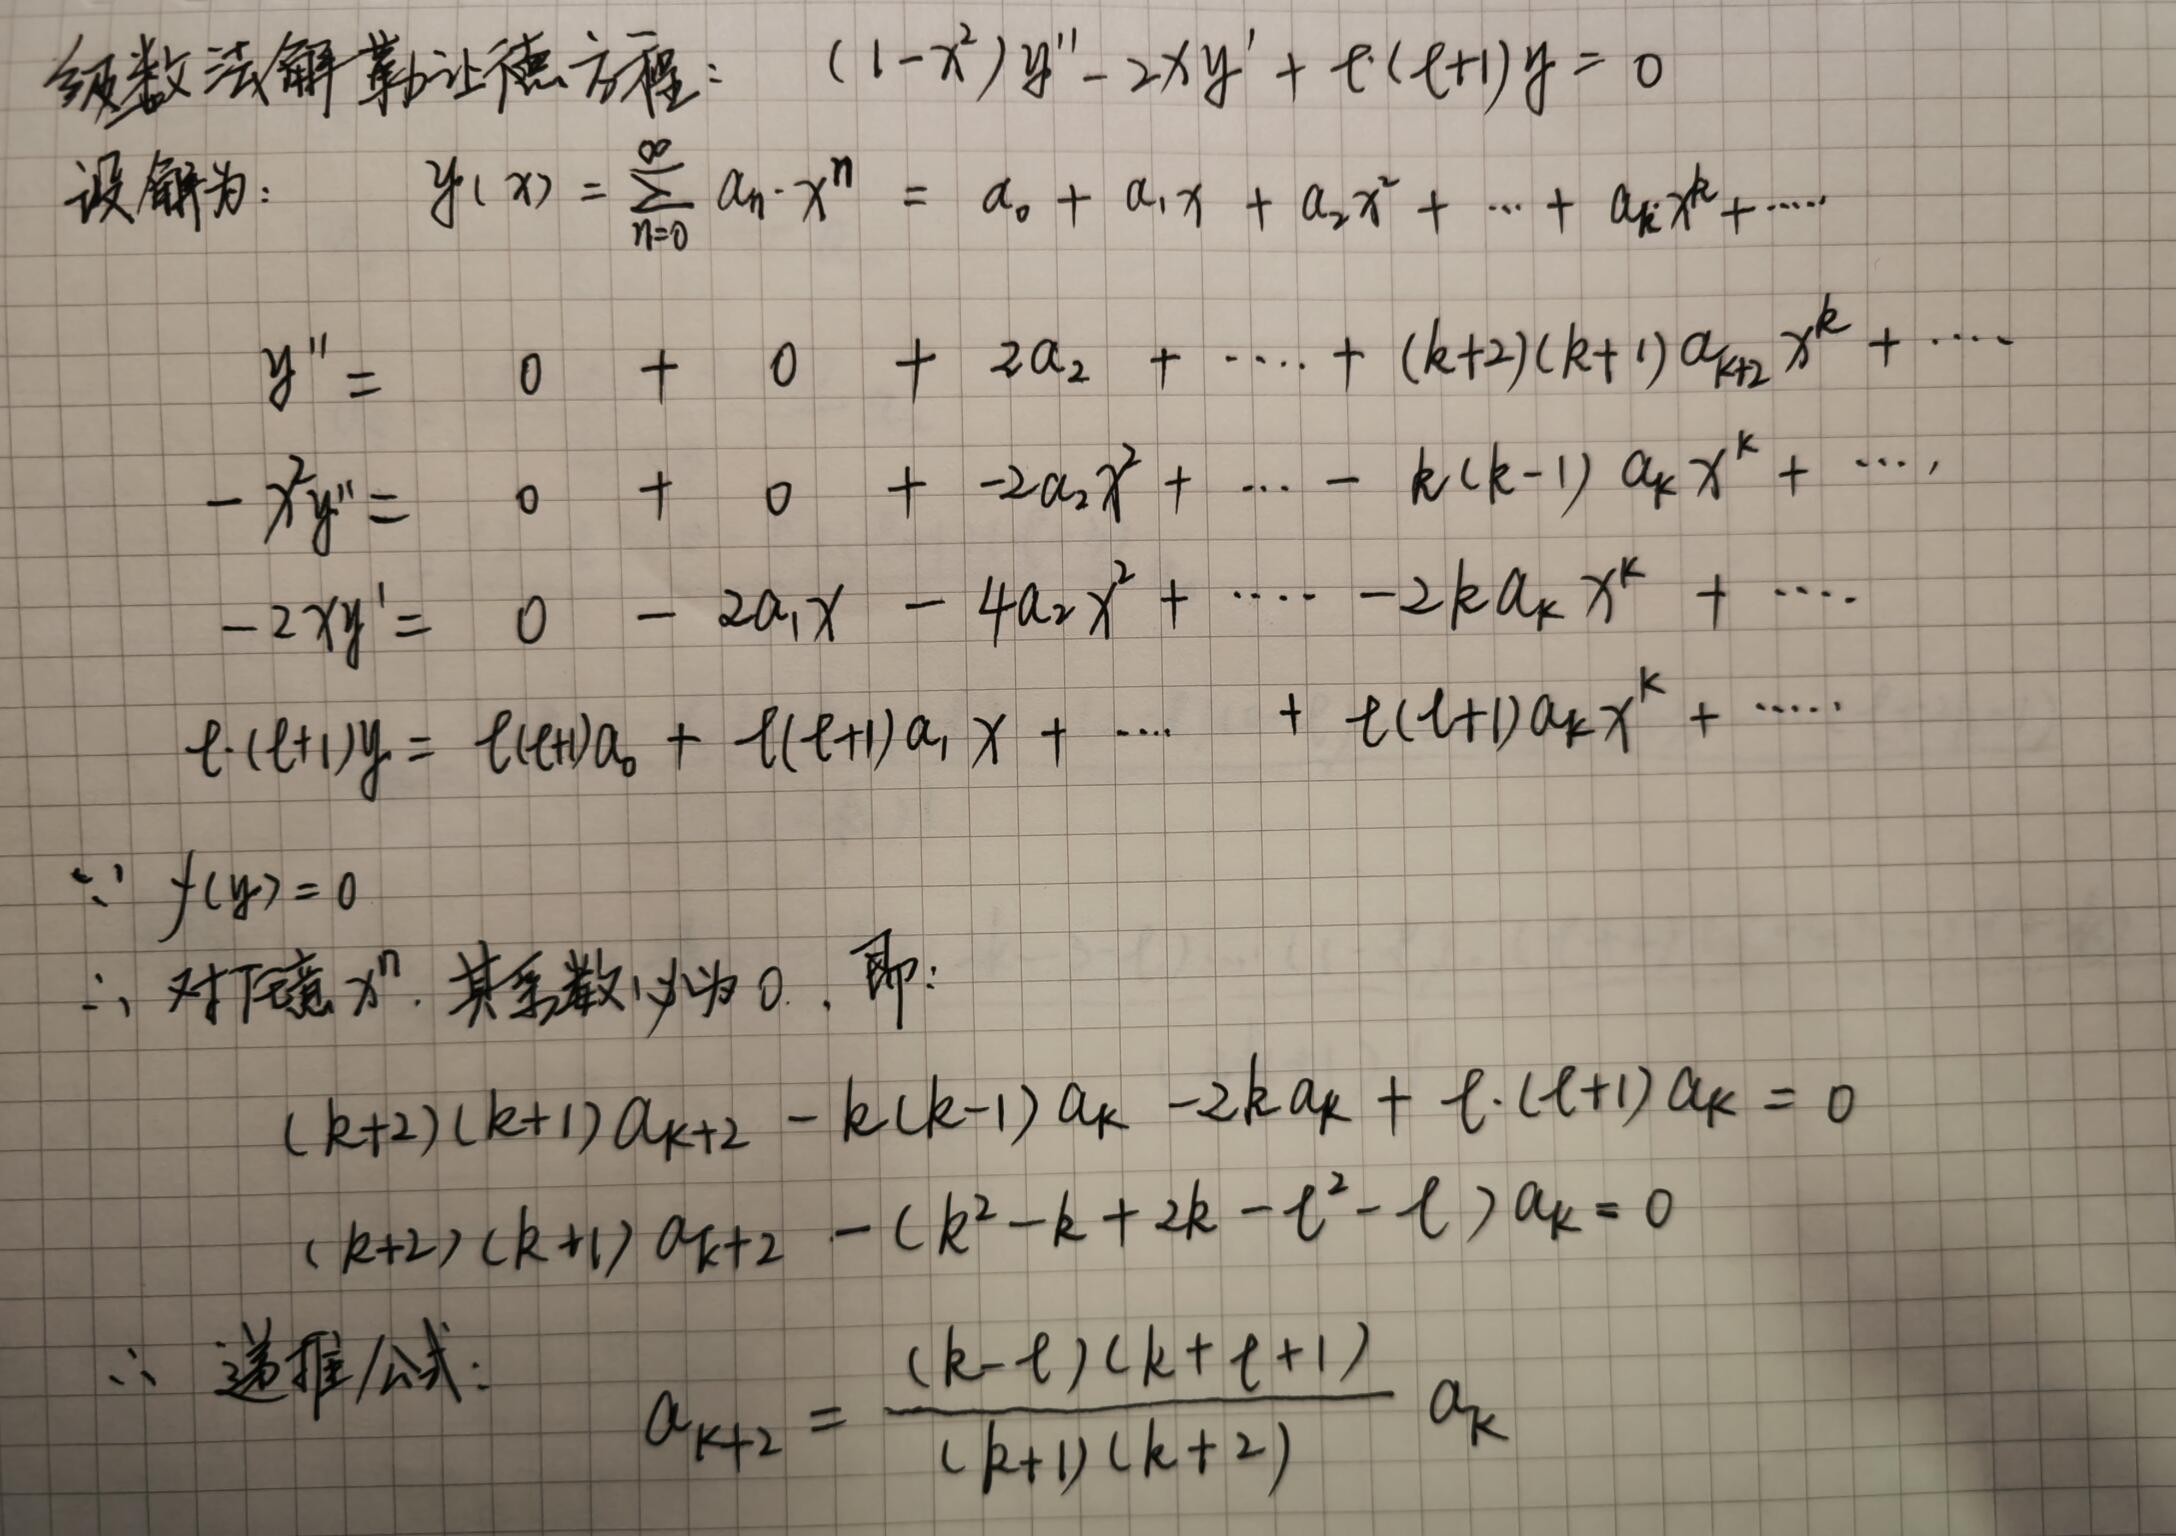 级数法解勒让德方程: (1-x²)y''-2xy'+ℓ·(ℓ+1)y=0
设解为: y(x) = \sum_{n=0}^{∞} a_n·x^n = a_0 + a_1x + a_2x² + ··· + a_kx^k + ·····
y'' = 0 + 0 + 2a_2 + ···· + (k+2)(k+1)a_{k+2}x^k + ····
-x²y'' = 0 + 0 + -2a_2x² + ··· - k(k-1)a_kx^k + ····
-2xy' = 0 - 2a_1x - 4a_2x² + ···· -2ka_kx^k + ····
ℓ·(ℓ+1)y = ℓ(ℓ+1)a_0 + ℓ(ℓ+1)a_1x + ···· + ℓ(ℓ+1)a_kx^k + ·····
∵ f(y)=0
∴ 对任意x^n, 其系数必为0, 即:
(k+2)(k+1)a_{k+2} - k(k-1)a_k - 2ka_k + ℓ·(ℓ+1)a_k = 0
(k+2)(k+1)a_{k+2} - (k²-k+2k-ℓ²-ℓ)a_k = 0
∴ 递推公式: a_{k+2} = \frac{(k-ℓ)(k+ℓ+1)}{(k+1)(k+2)} a_k